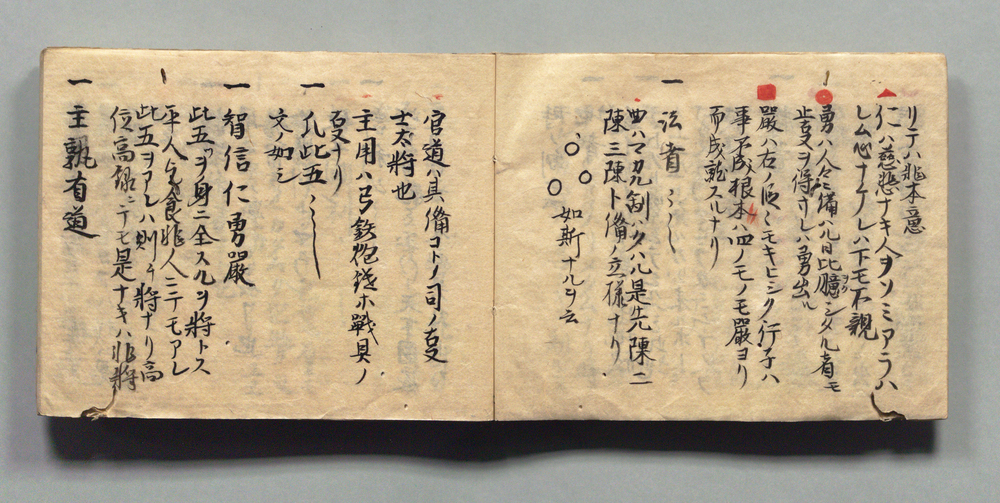 リテハ非本意
仁ハ慈悲ナキ人ヲソミアラハ
レム心ナケレハ下モ不親
勇ハ人々ニ備ハル比臆シタル者モ
此㕝ヲ得サレハ勇出ル
嚴ハ右ノ ニモキヒシク行子ハ
事不成根本ハ四ノモノモ嚴ヨリ
而成就スルナリ
一 法者
曲ハマカリ制ハ ハル是先陳二
陳三陳ト備ノ立様ナリ
如斯ナルヲ云
官道ハ具備コトノ司ノ㕝
士大将也
主用ハ弓鉄炮 ホ戰具ノ
㕝ナリ
一 凡此五
文ノ如シ
一 智信仁勇嚴
此五ツヲ身ニ全スルヲ将トス
平人乞食非人ニテモアレ
此五ヲアレハ則チ将ナリ高
位高録ニテモ是ナキハ非将
一 主孰有道